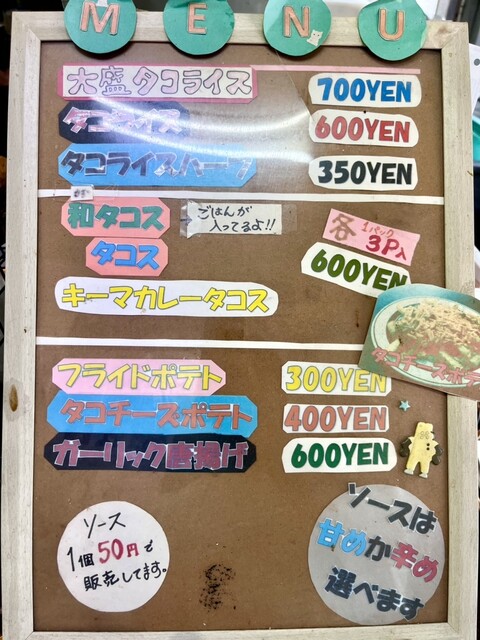 MENU
大盛タコライス 700YEN
タコライス 600YEN
タコライスハーフ 350YEN
和タコス ごはんが
入ってるよ!!
各 1パック
3P入
タコス 600YEN
キーマカレータコス
フライドポテト 300YEN
タコチーズポテト 400YEN
ガーリック唐揚げ 600YEN
タコチーズポテ
ソース
1個50円で
販売してます。
ソースは
甘めか辛め
選べます